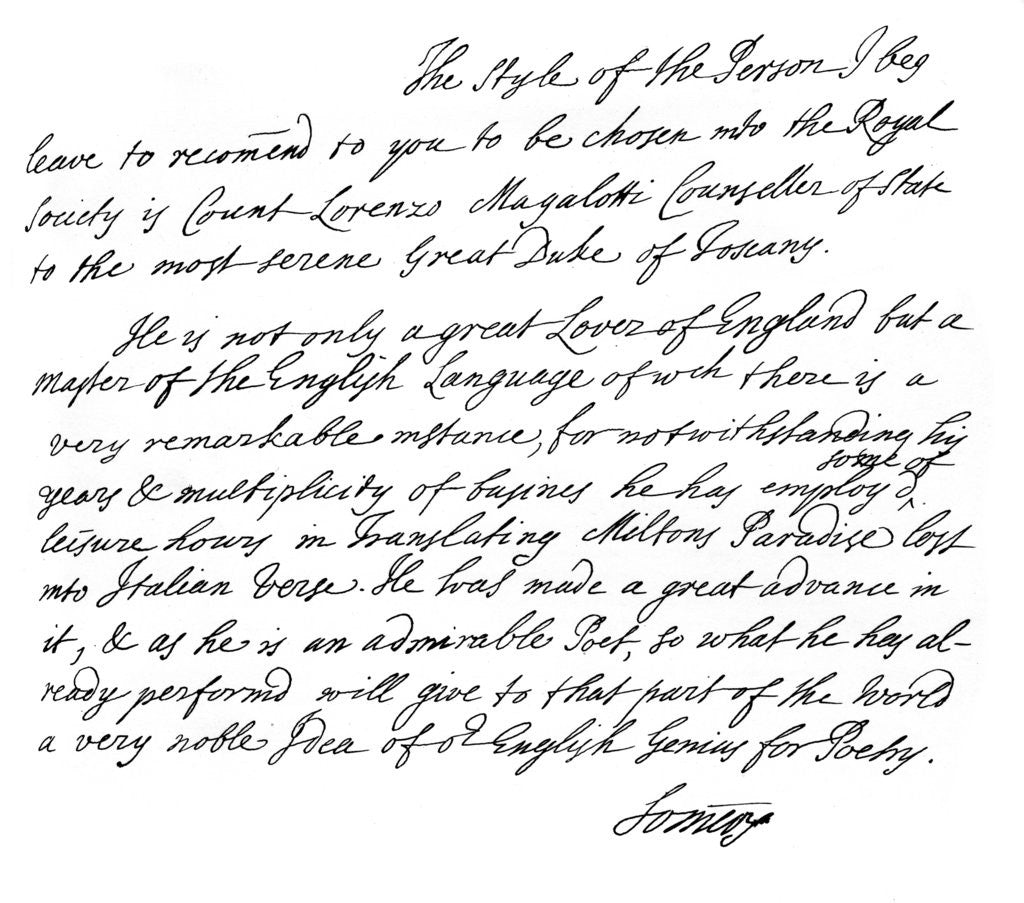 The Style of the Person I beg
leave to recom̄end to you to be chosen into the Royal
Society is Count Lorenzo Magalotti Counseller of State
to the most serene Great Duke of Toscany.
He is not only a great Lover of England but a
master of the English Language of wch there is a
very remarkable instance, for notwithstanding his
some of
years & multiplicity of busines he has employd ^
leisure hours in Translating Miltons Paradise lost
into Italian Verse. He has made a great advance in
it, & as he is an admirable Poet, so what he has al-
ready performd will give to that part of the World
a very noble Idea of or English Genius for Poetry.
Som̄ers